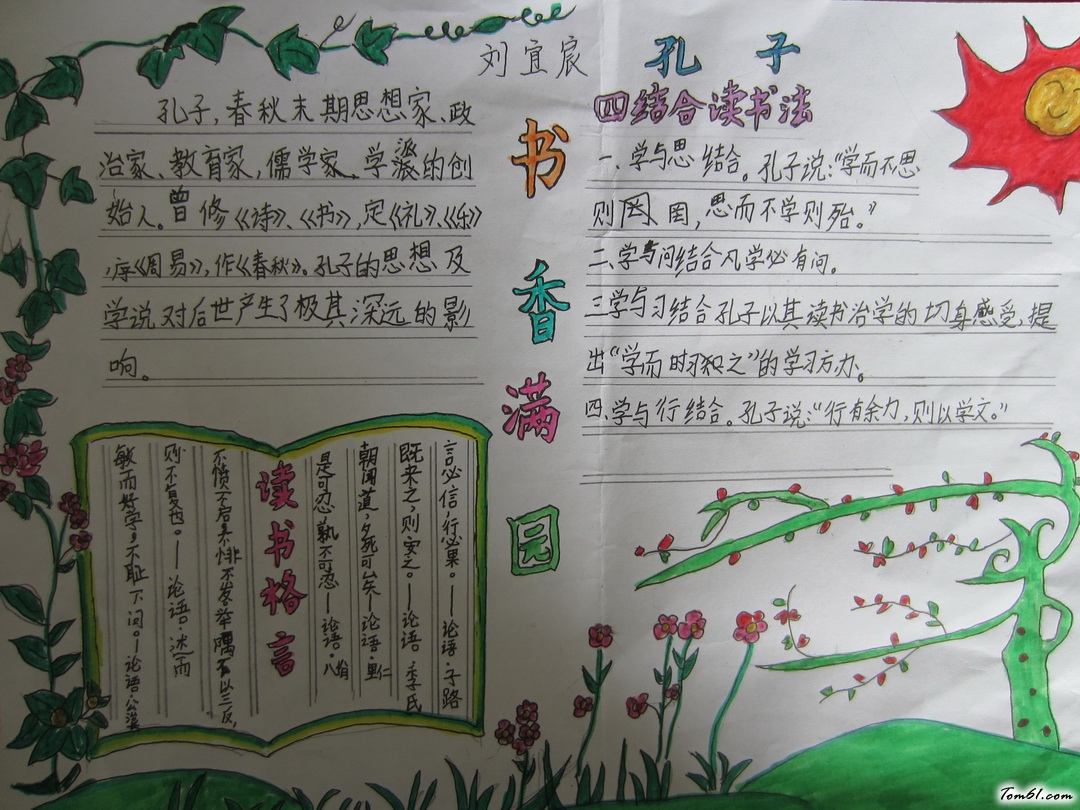 刘宜宸
孔子,春秋末期思想家、政
治家、教育家,儒学家、学派的创
始人。曾修《诗》、《书》,定《礼》、《乐》
,序《周易》,作《春秋》。孔子的思想及
学说对后世产生了极其深远的影
响。
书香满园
孔子
四结合读书法
一、学与思结合。孔子说:“学而不思
则罔,思而不学则殆。”
二、学与问结合凡学必有问。
三学与习结合孔子以其读书治学的切身感受,提
出“学而时习之”的学习方办。
四、学与行结合。孔子说:“行有余力,则以学文。”
言必信,行必果。——论语·子路
既来之,则安之。——论语·季氏
朝闻道,夕死可矣—论语·里仁
是可忍,孰不可忍—论语·八佾
读书格言
不愤不启,不悱不发,举隅不以三反,
则不复也。——论语·述而
敏而好学,不耻下问。—论语·公
Tom61.com